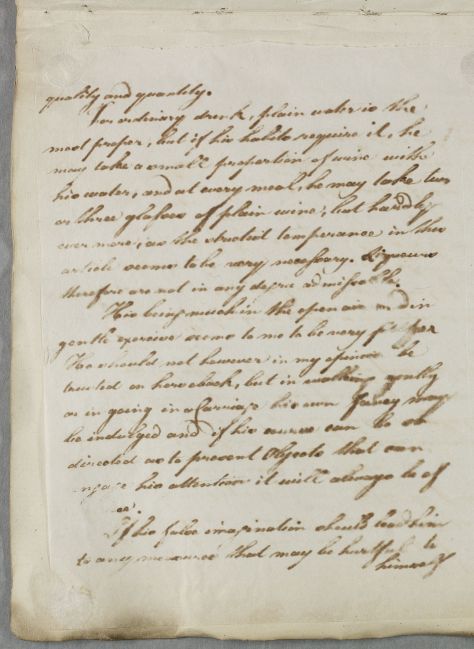 quality and quantity.
For ordinary drink, plain water is the
most proper, but if his habits require it, he
may take a small proportion of wine with
his water, and at every meal, he may take two
or three glasses of plain wine; but hardly
ever more, as the strictest temperance in this
article seems to be very necessary. Liqueurs
therefore are not in any degree admissable.
His being much in the open air and in
gentle exercise seems to me to be very proper
He should not however in my opinion be
trusted on horseback, but in walking gently
or in going in a Carriage his own fancy may
be indulged and if his course can be so
directed as to present Objects that can
engage his attention it will always be of
use.
If his false imagination should lead him
to any measures that may be hurtful to
himself